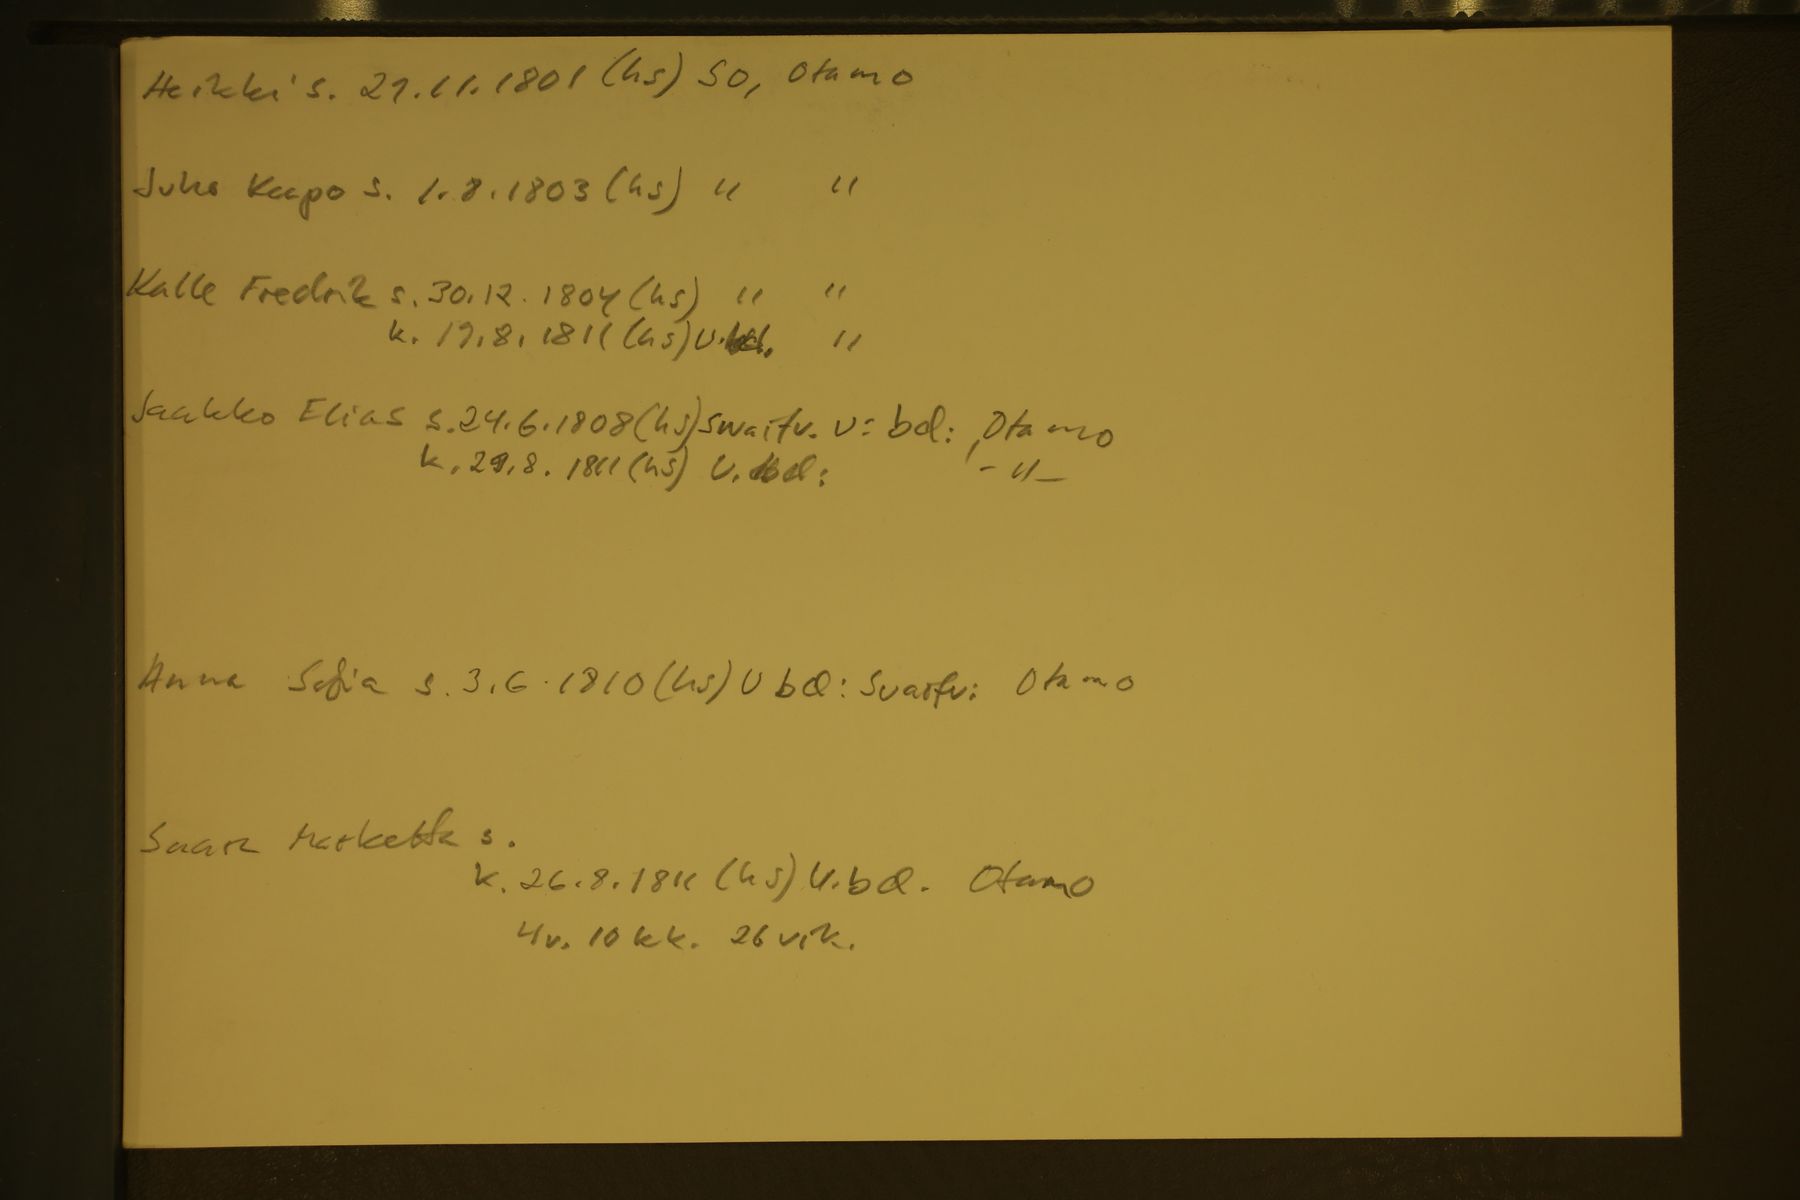 Heikki s. 29.11.1801 (hs) SO, Otamo
Juho Kaapo s. 1.8.1803 (hs) " "
Kalle Fredrik s. 30.12.1804 (hs) " "
k. 19.8.1811 (hs) U.bd. "
Jaakko Elias s. 24.6.1808 (hs) Svartv. U: bd:, Otamo
k. 29.8.1811 (hs) U.bd: -"-
Anna Sofia s. 3.6.1810 (hs) U bd: Svartv: Otamo
Saara Marketta s.
k. 26.8.1811 (hs) U.bd. Otamo
4v. 10 kk. 26 vik.